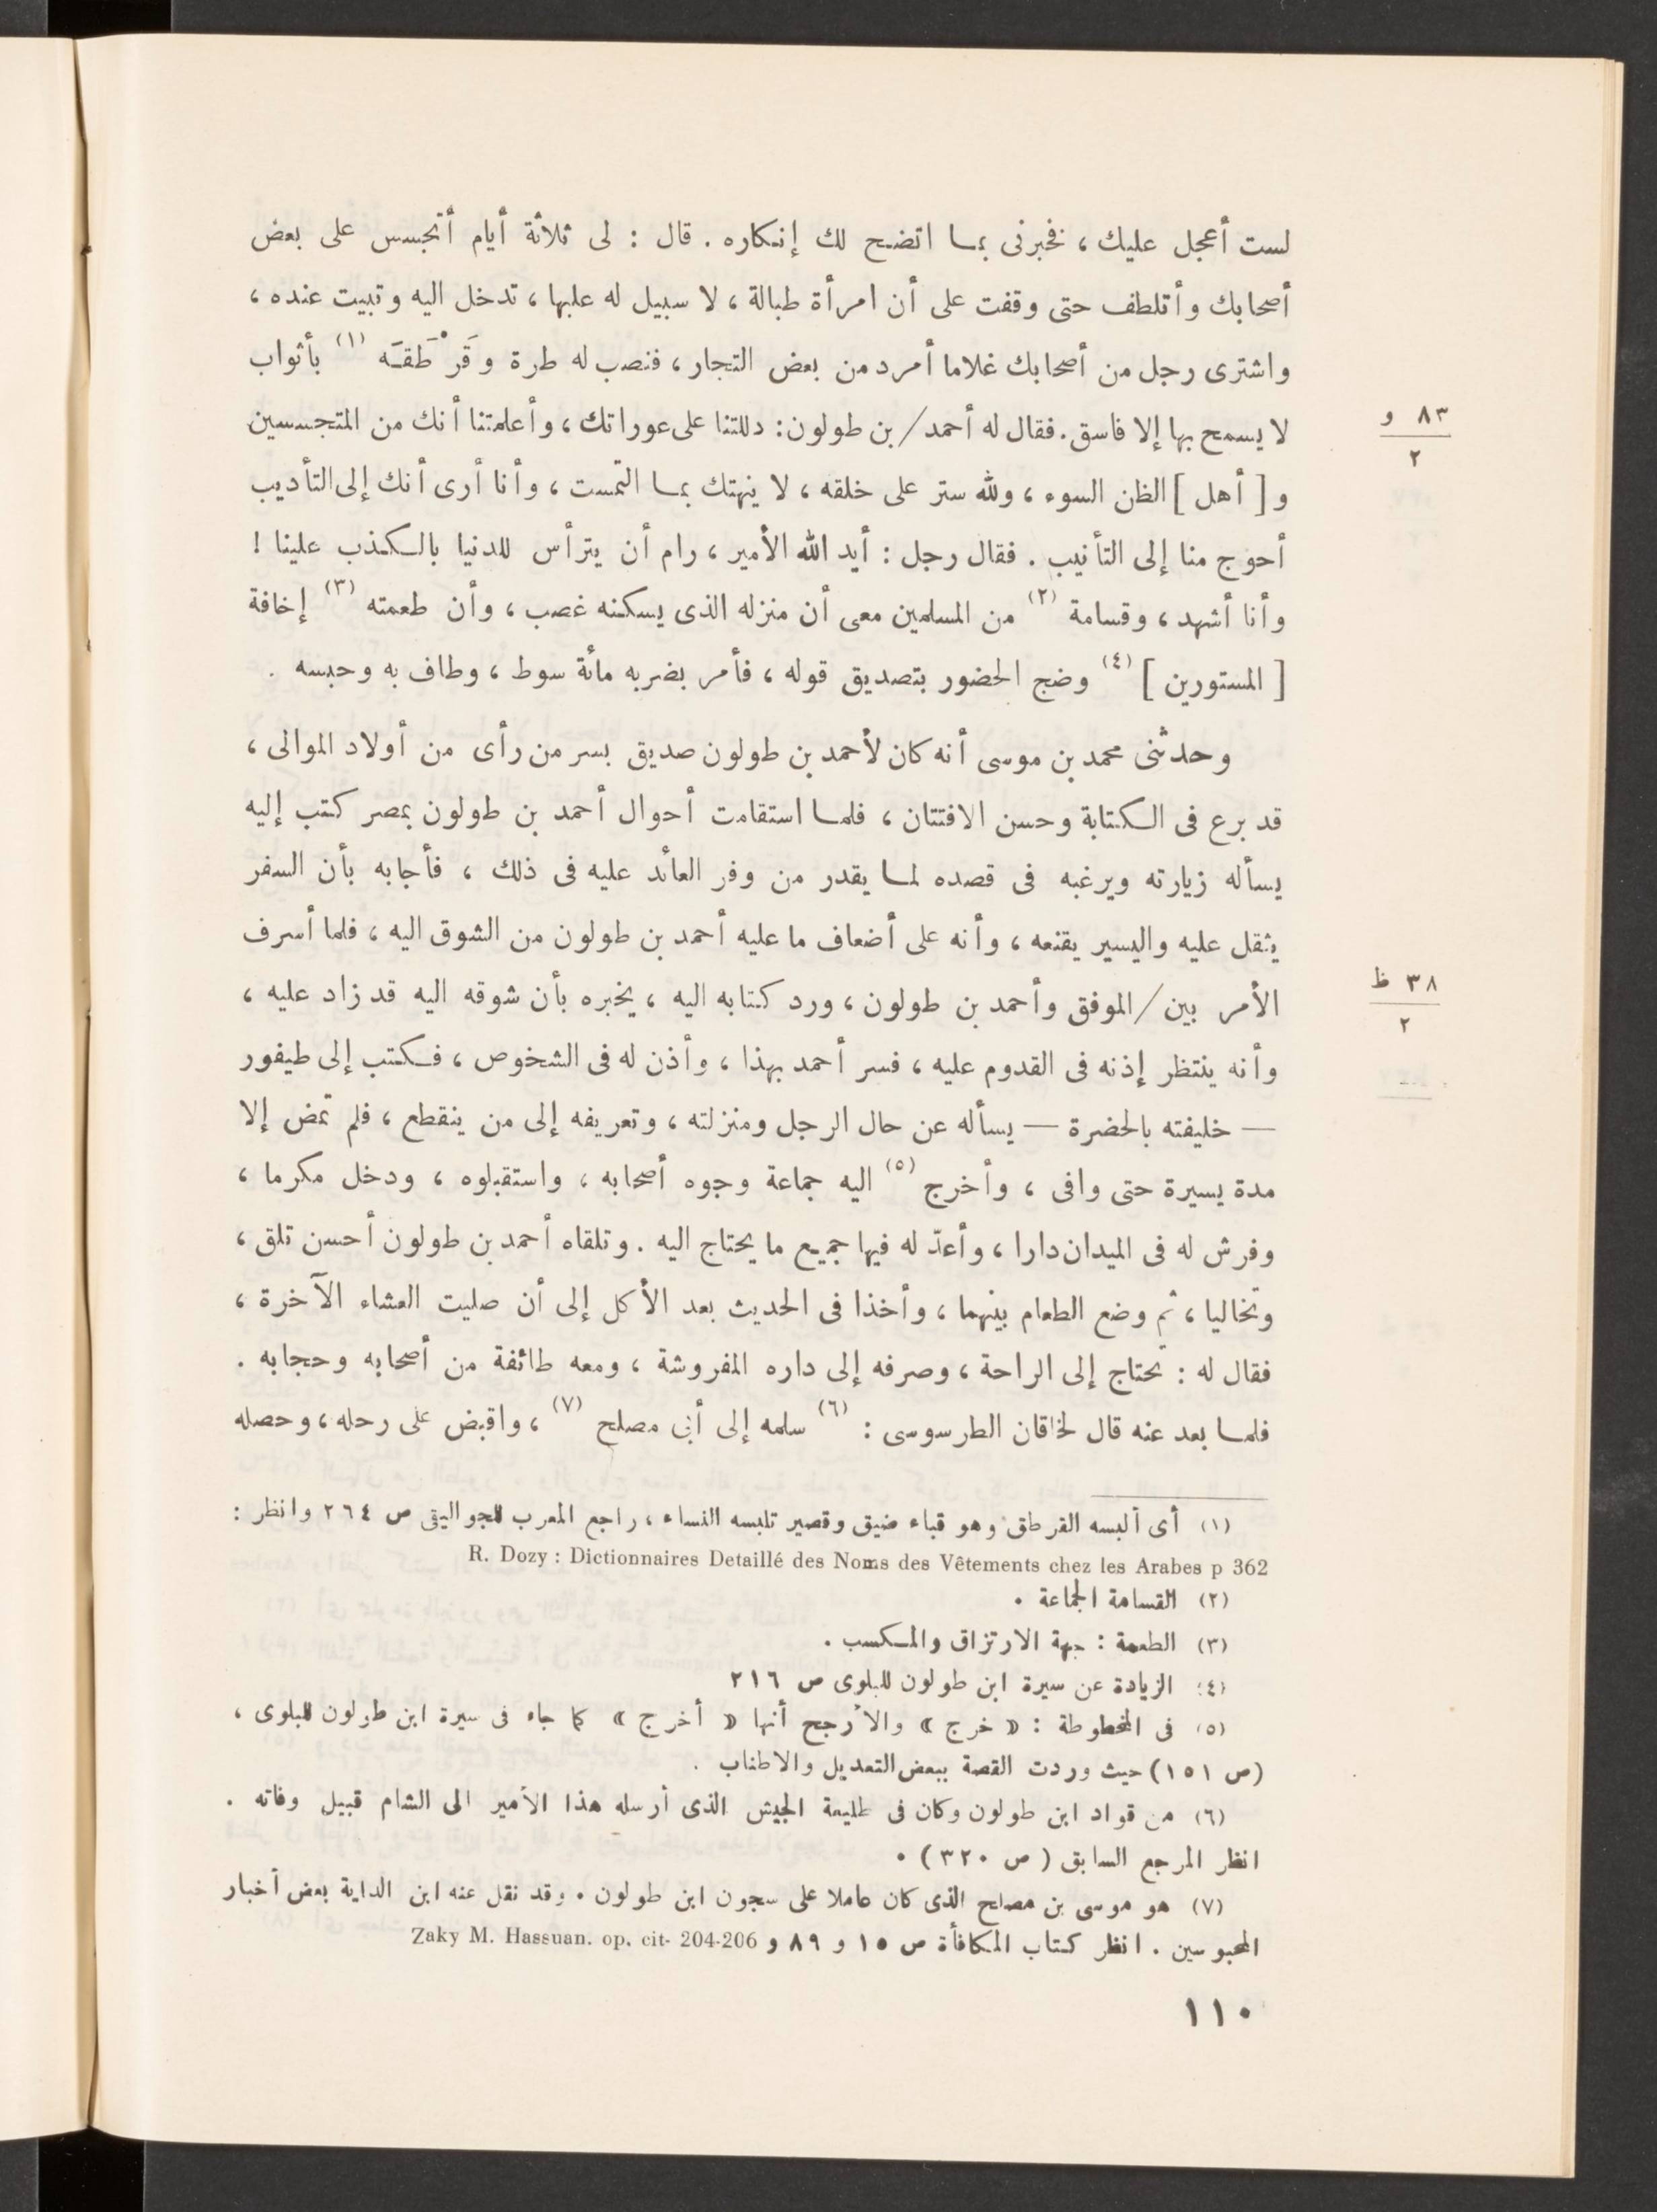 لست أعجل عليك ، فخبرنى بما اتضح لك إنكاره . قال : لى ثلاثة أيام أتجسس على بعض
أصحابك وأتلطف حتى وقفت على أن امرأة طبالة ، لا سبيل له عليها ، تدخل اليه وتبيت عنده ،
واشترى رجل من أصحابك غلاما أمرد من بعض التجار ، فنصب له طرة وقَرْطَقَه (١) بأثواب
لا يسمح بها إلا فاسق . فقال له أحمد / بن طولون : دللتنا على عوراتك ، وأعلمتنا أنك من المتجسسين
٨٣ و
٢
و [ أهل ] الظن السوء ، ولله ستر على خلقه ، لا ينهتك بما التمست ، وأنا أرى أنك إلى التأديب
أحوج منا إلى التأنيب . فقال رجل : أيد الله الأمير ، رام أن يترأس للدنيا بالكذب علينا !
وأنا أشهد ، وقسامة (٢) من المسلمين معى أن منزله الذى يسكنه غصب ، وأن طعمته (٣) إخافة
[ المستورين ] (٤) وضج الحضور بتصديق قوله ، فأمر بضربه مائة سوط ، وطاف به وحبسه .
وحدثنى محمد بن موسى أنه كان لأحمد بن طولون صديق بسر من رأى من أولاد الموالى ،
قد برع فى الكتابة وحسن الافتتان ، فلما استقامت أحوال أحمد بن طولون بمصر كتب إليه
يسأله زيارته ويرغبه فى قصده لما يقدر من وفر العائد عليه فى ذلك ، فأجابه بأن السفر
يثقل عليه واليسير يقنعه ، وأنه على أضعاف ما عليه أحمد بن طولون من الشوق اليه ، فلما أسرف
الأمر بين / الموفق وأحمد بن طولون ، ورد كتابه اليه ، يخبره بأن شوقه اليه قد زاد عليه ،
٣٨ ظ
٢
وأنه ينتظر إذنه فى القدوم عليه ، فسر أحمد بهذا ، وأذن له فى الشخوص ، فكتب إلى طيفور
— خليفته بالحضرة — يسأله عن حال الرجل ومنزلته ، وتعريفه إلى من ينقطع ، فلم تمض إلا
مدة يسيرة حتى وافى ، وأخرج (٥) اليه جماعة وجوه أصحابه ، واستقبلوه ، ودخل مكرما ،
وفرش له فى الميدان دارا ، وأعدّ له فيها جميع ما يحتاج اليه . وتلقاه أحمد بن طولون أحسن تلق ،
وتخاليا ، ثم وضع الطعام بينهما ، وأخذا فى الحديث بعد الأكل إلى أن صليت العشاء الآخرة ،
فقال له : تحتاج إلى الراحة ، وصرفه إلى داره المفروشة ، ومعه طائفة من أصحابه وحجابه .
فلما بعد عنه قال لخاقان الطرسوسى : (٦) سلمه إلى أبى مصلح (٧) ، واقبض على رحله ، وحصله
(١) أى ألبسه القرطق وهو قباء ضيق وقصير تلبسه النساء ، راجع المعرب للجواليقى ص ٢٦٤ وانظر :
R. Dozy : Dictionnaires Detaillé des Noms des Vêtements chez les Arabes p 362
(٢) القسامة الجماعة .
(٣) الطعمة : جهة الارتزاق والمكسب .
(٤) الزيادة عن سيرة ابن طولون للبلوى ص ٢١٦
(٥) فى المخطوطة : « خرج » والأرجح أنها « أخرج » كما جاء فى سيرة ابن طولون للبلوى ،
(ص ١٥١) حيث وردت القصة ببعض التعديل والاطناب .
(٦) من قواد ابن طولون وكان فى طليعة الجيش الذى أرسله هذا الأمير الى الشام قبيل وفاته .
انظر المرجع السابق ( ص ٣٢٠ ) .
(٧) هو موسى بن مصلح الذى كان عاملا على سجون ابن طولون . وقد نقل عنه ابن الداية بعض أخبار
المحبوسين . انظر كتاب المكافأة ص ١٥ و ٨٩ و Zaky M. Hassuan. op. cit- 204-206
١١٠